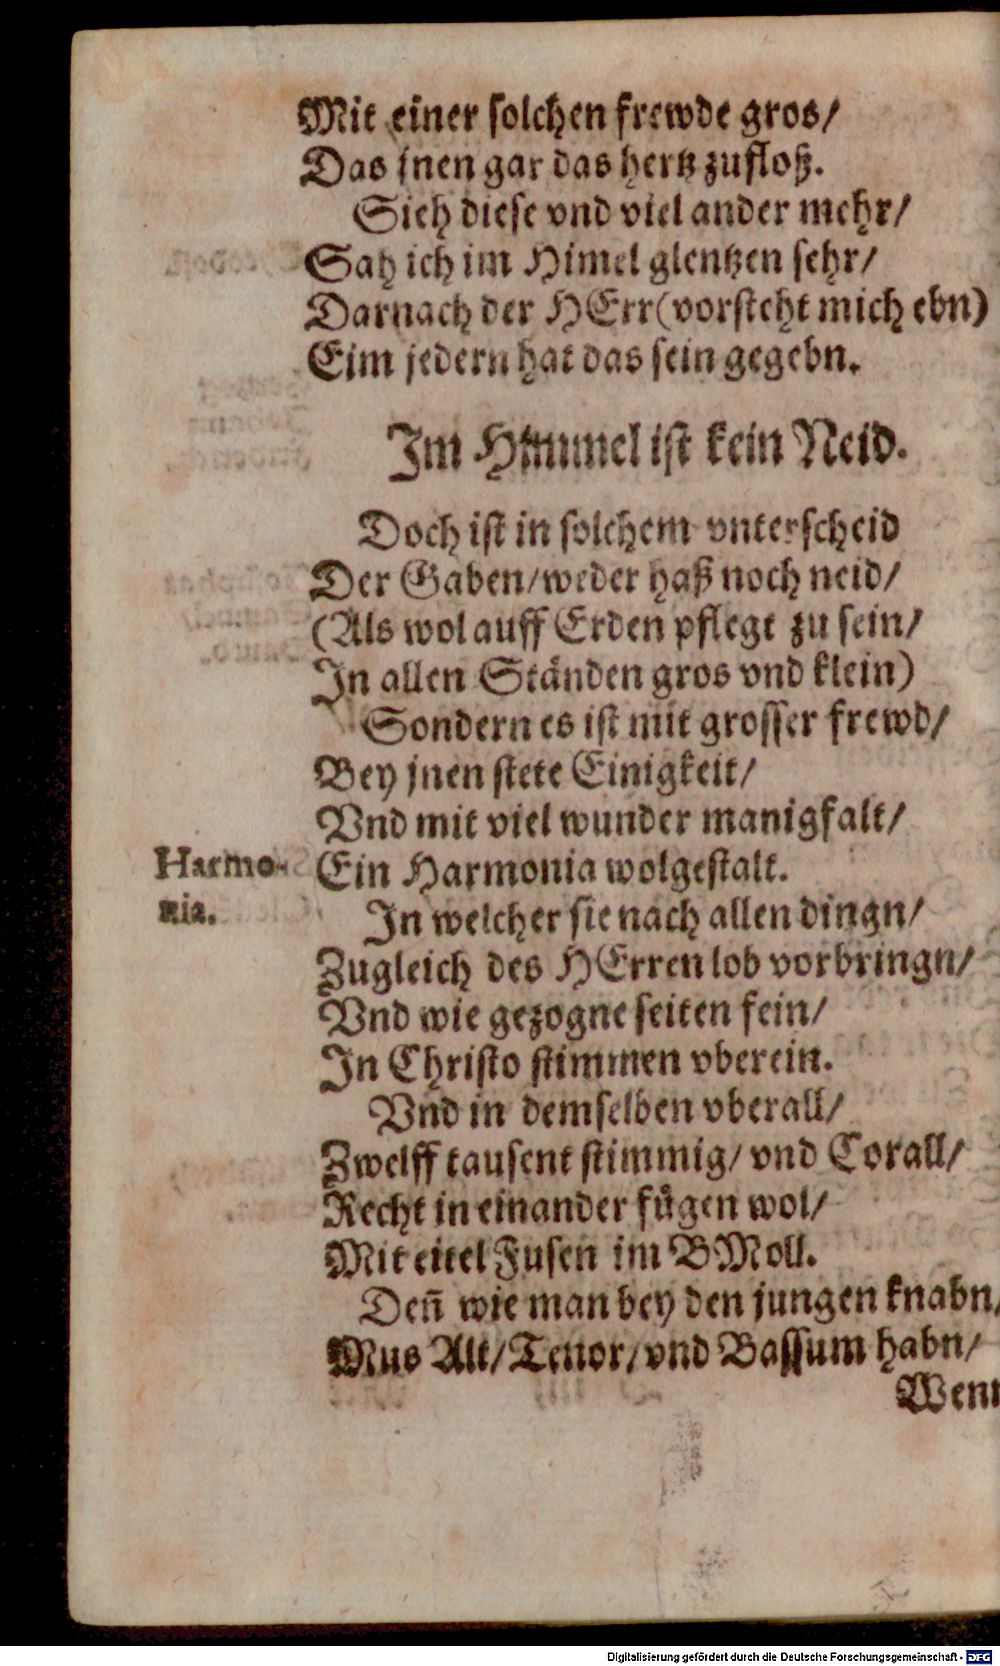 Mit einer solchen frewde gros/
Das jnen gar das hertz zufloß.
Sieh diese vnd viel ander mehr/
Sah ich im Himel glentzen sehr/
Darnach der HErr (vorsteht mich ebn)
Eim jedern hat das sein gegebn.
Im Himmel ist kein Neid.
Doch ist in solchem vnterscheid
Der Gaben/weder haß noch neid/
(Als wol auff Erden pflegt zu sein/
In allen Ständen gros vnd klein)
Sondern es ist mit grosser frewd/
Bey jnen stete Einigkeit/
Vnd mit viel wunder manigfalt/
Harmo- Ein Harmonia wolgestalt.
nia. In welcher sie nach allen dingn/
Zugleich des HErren lob vorbringn/
Vnd wie gezogne seiten fein/
In Christo stimmen vberein.
Vnd in demselben vberall/
Zwelff tausent stimmig/ vnd Corall/
Recht in einander fügen wol/
Mit eitel Fusen im BMoll.
Deñ wie man bey den jungen knabn/
Mus Alt/Tenor/vnd Bassum habn/
Wenn
Digitalisierung gefördert durch die Deutsche Forschungsgemeinschaft - DFG